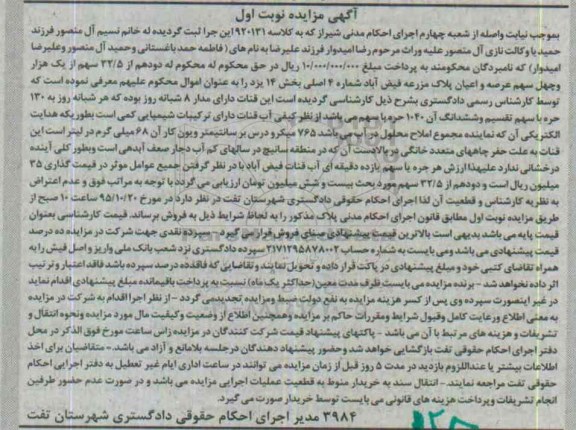 آگهی مزایده نوبت اول
بموجب نیابت واصله از شعبه چهارم اجرای احکام مدنی شیراز که به کلاسه ۹۲۰۱۳۱ این جرا ثبت گردیده له خانم نسیم آل منصور فرزند
حمید با وکالت نازی آل منصور علیه وراث مرحوم رضا امیدوار فرزند علیرضا به نام های (فاطمه حمد باغستانی و حمید آل منصور و علیرضا
امیدوار) که نامبردگان محکومند به پرداخت مبلغ ۱۰/۰۰۰/۰۰۰/۰۰۰ ریال در حق محکوم له محکوم له دودهم از ۳۲/۵ سهم از یک هزار
وچهل سهم عرصه و اعیان پلاک مزرعه فیض آباد شماره ۴ اصلی بخش ۱۴ یزد را به عنوان اموال محکوم علیهم معرفی نموده است که
توسط کارشناس رسمی دادگستری بشرح ذیل کارشناسی گردیده است این قنات دارای مدار ۸ شبانه روز بوده که هر شبانه روز به ۱۳۰
جره یا سهم تقسیم وششدانگ آن ۱۰۴۰ جره یا سهم می باشد از نظر کیفی آب قنات دارای ترکیبات شیمیایی کمی است بطوریکه هدایت
الکتریکی آن که نماینده مجموع املاح محلول در آب می باشد ۷۶۵ میکرو درس بر سانتیمتر ویون کار آن ۶۸ میلی گرم در لیتر است این
قنات به علت حفر چاههای متعدد خانگی در بالادست آن که در منطقه سانیج در سالهای کم آب دچار ضعف آبدهی است وبطور کلی آینده
درخشانی ندارد علیهذا ارزش هر جره یا سهم یازده دقیقه ای آب قنات فیض آباد با در نظر گرفتن جمیع عوامل موثر در قیمت گذاری ۳۵
میلیون ریال است و دودهم از ۳۲/۵ سهم مورد بحث بیست و شش میلیون تومان ارزیابی می گردد با توجه به مراتب فوق و عدم اعتراض
به نظریه کارشناس و قطعیت آن لذا اجرای احکام حقوقی دادگستری شهرستان تفت در نظر دارد در مورخ ۹۵/۱۰/۲۰ ساعت ۱۰ صبح از
طریق مزایده نوبت اول مطابق قانون اجرای احکام مدنی پلاک مذکور را به لحاظ شرایط ذیل به فروش برساند. قیمت کارشناسی بعنوان
قیمت پایه می باشد بدیهی است بالاترین قیمت پیشنهادی مبنای فروش قرار می گیرد - سپرده نقدی جهت شرکت در مزایده ده درصد
قیمت پیشنهادی می باشد و می بایست به شماره حساب ۲۱۷۱۲۹۵۸۷۸۰۰۲ سپرده دادگستری نزد شعب بانک ملی واریز و اصل فیش را به
همراه تقاضای کتبی خود و مبلغ پیشنهادی در پاکت قرار داده و تحویل نمایند و تقاضایی که فاقد ده درصد سپرده باشد فاقد اعتبار و ترتیب
اثر داده نخواهد شد - برنده مزایده می بایست ظرف مدت معین (حداکثر یک ماه) نسبت به پرداخت باقیمانده مبلغ پیشنهادی اقدام نماید
در غیر اینصورت سپرده وی پس از کسر هزینه مزایده به نفع دولت ضبط و مزایده تجدید می گردد - از نظر اجرا اقدام به شرکت در مزایده
به معنی اطلاع و رعایت کامل وقبول شرایط ومقررات حاکم بر مزایده و همچنین اطلاع از وضعیت وکیفیت مال مورد مزایده ونحوه انتقال و
تشریفات و هزینه های مرتبط با آن می باشد - پاکتهای پیشنهاد قیمت شرکت کنندگان در مزایده راس ساعت مورخ فوق الذکر در محل
دفتر اجرای احکام حقوقی تفت بازگشایی خواهد شد وحضور پیشنهاد دهندگان در جلسه بلامانع و آزاد می باشد - متقاضیان برای اخذ
اطلاعات بیشتر یا عنداللزوم بازدید در مدت ۵ روز قبل از زمان مزایده می توانند در ساعت اداری ایام غیر تعطیل به دفتر اجرایی احکام
حقوقی تفت مراجعه نمایند - انتقال سند به خریدار منوط به قطعیت عملیات اجرایی مزایده می باشد و در صورت عدم حضور طرفین
انجام تشریفات و پرداخت هزینه های قانونی می بایست توسط خریدار صورت می گیرد.
۳۹۸۴ مدیر اجرای احکام حقوقی دادگستری شهرستان تفت